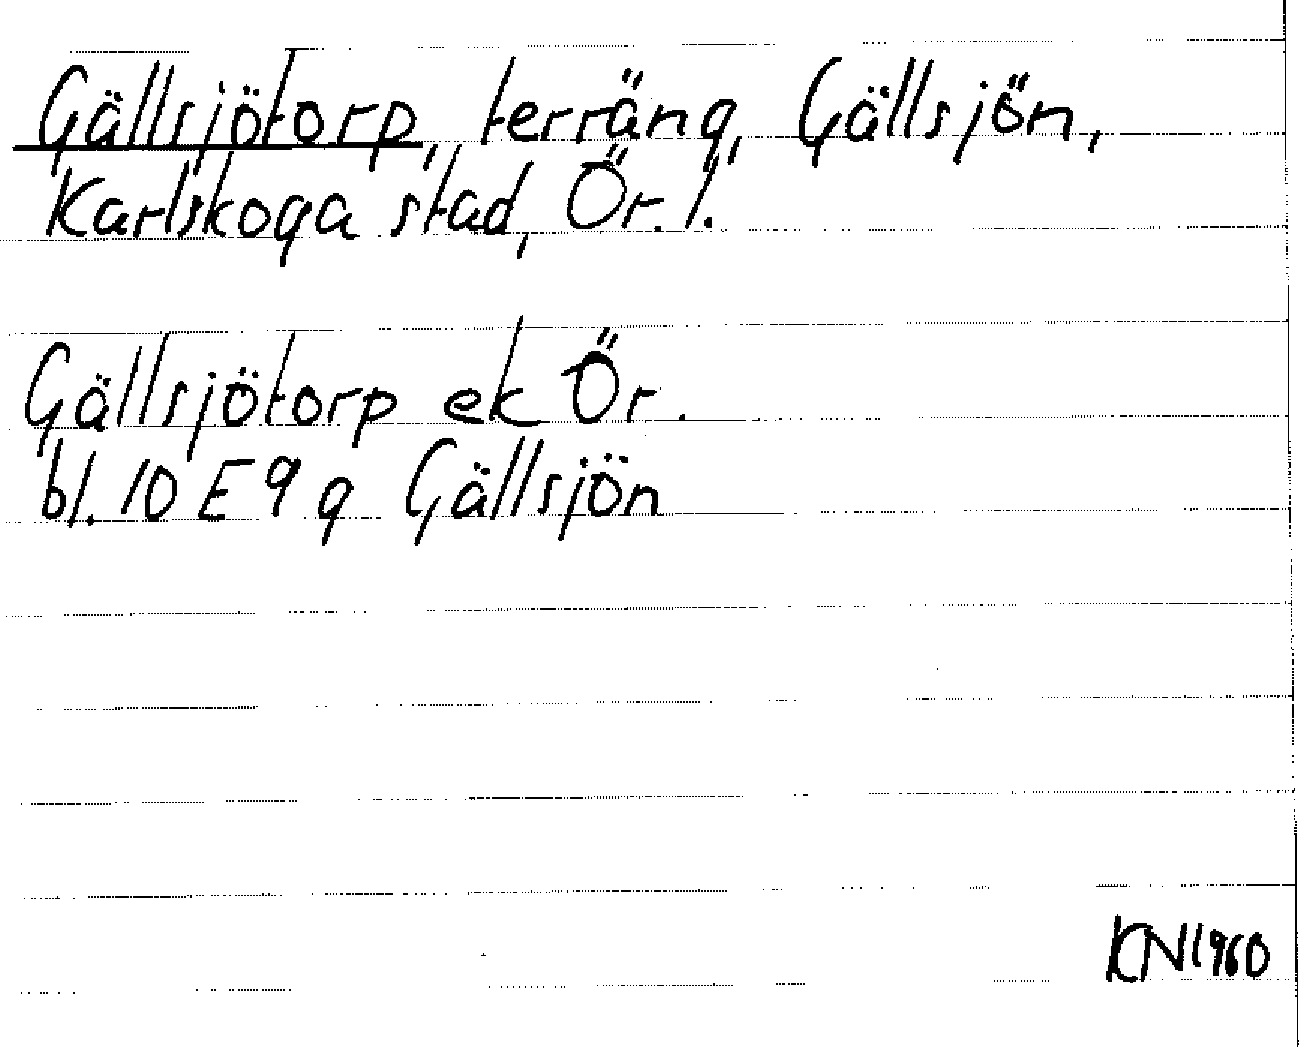 Gällsjötorp, terräng, Gällsjön,
Karlskoga stad, Ör. l.
Gällsjötorp ek Ör.
bl. 10 E 9 g Gällsjön
KN 1960